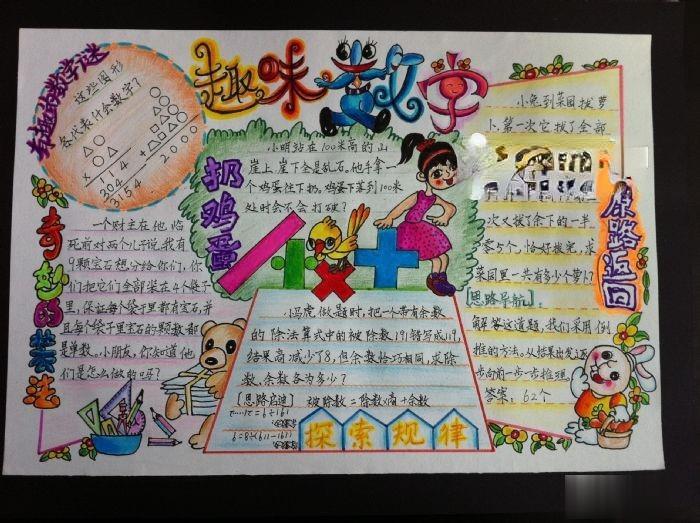 趣味数学
有趣的数学谜
这些图形
各代表什么数字?
114
304
3154
2000
扔鸡蛋
小明站在100米高的山
崖上,崖下全是乱石。他手拿一
个鸡蛋往下扔。鸡蛋下落到100米
处时会不会打破?
奇妙的装法
一个财主在他临
死前对两个儿子说,我有
9颗宝石想分给你们,你
们把它们全部装在4个袋子
里,保证每个袋子里都有宝石,并
且每个袋子里宝石的颗数都
是单数。小朋友,你知道他
们是怎么做的吗?
小马虎做题时,把一个带有余数
的除法算式中的被除数191错写成119,
结果商减少了8,但余数恰巧相同,求除
数、余数各为多少?
[思路启迪] 被除数=除数×商+余数
探索规律
原路返回
小兔到菜园拔萝
卜,第一次它拔了全部
次又拔了余下的一半
零5个,恰好拔完,求
菜园里一共有多少个萝卜?
[思路导航]
解答这道题,我们采用倒
推的方法。从结果出发,逐
步向前一步一步推理。
答案:62个